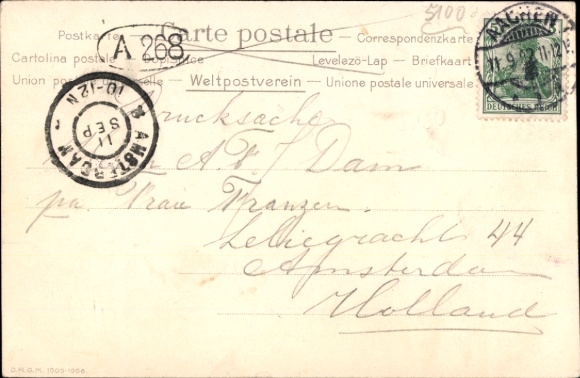 5100
Postkarte — Carte postale — Correspondenzkarte
A 268
Cartolina postale — Dopisnice Levelezö-Lap — Briefkaart
Union postale universelle — Weltpostverein — Unione postale universale
AACHEN
11 9 11-12
DEUTSCHES REICH
AMSTERDAM
11 SEP
10-12 N
Drucksache
A. V. J Dam
pa. Vrau Franzen.
Leliegracht 44
Amsterdam
Holland
D.R.G.M.